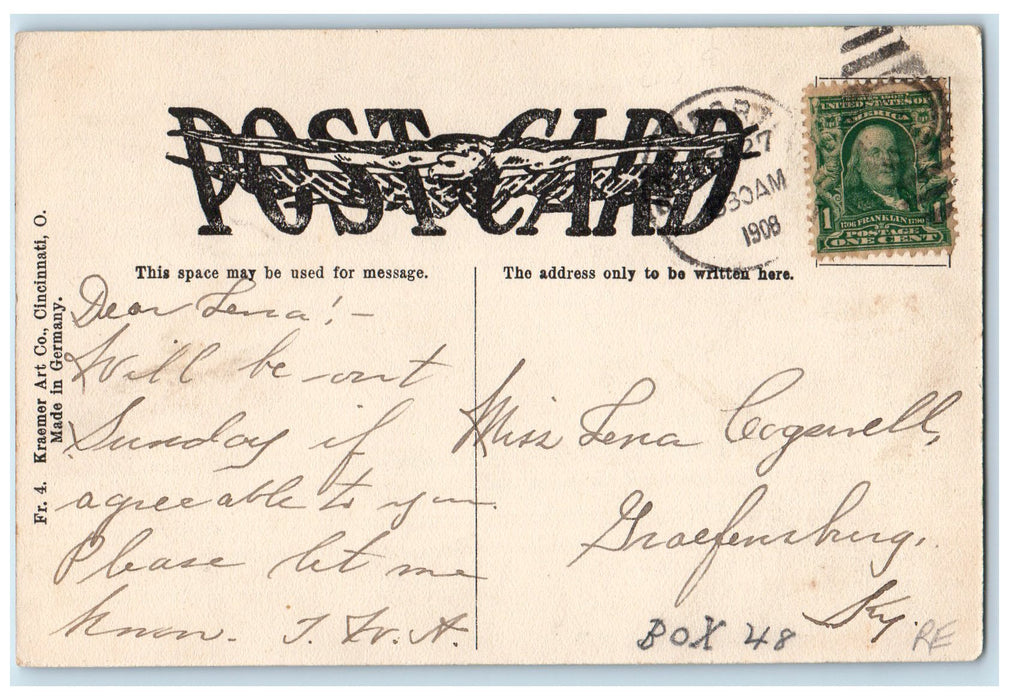 POST CARD
27
830AM
1908
UNITED STATES OF
AMERICA
1 1706 FRANKLIN 1790 1
POSTAGE
ONE CENT
This space may be used for message.
The address only to be written here.
Fr. 4. Kraemer Art Co., Cincinnati, O.
Made in Germany.
Dear Lena! -
Will be out
Sunday if
agreeable to you.
Please let me
know. J. W. A.
Miss Lena Cogswell,
Graefensburg,
Ky.
BOX 48
RE